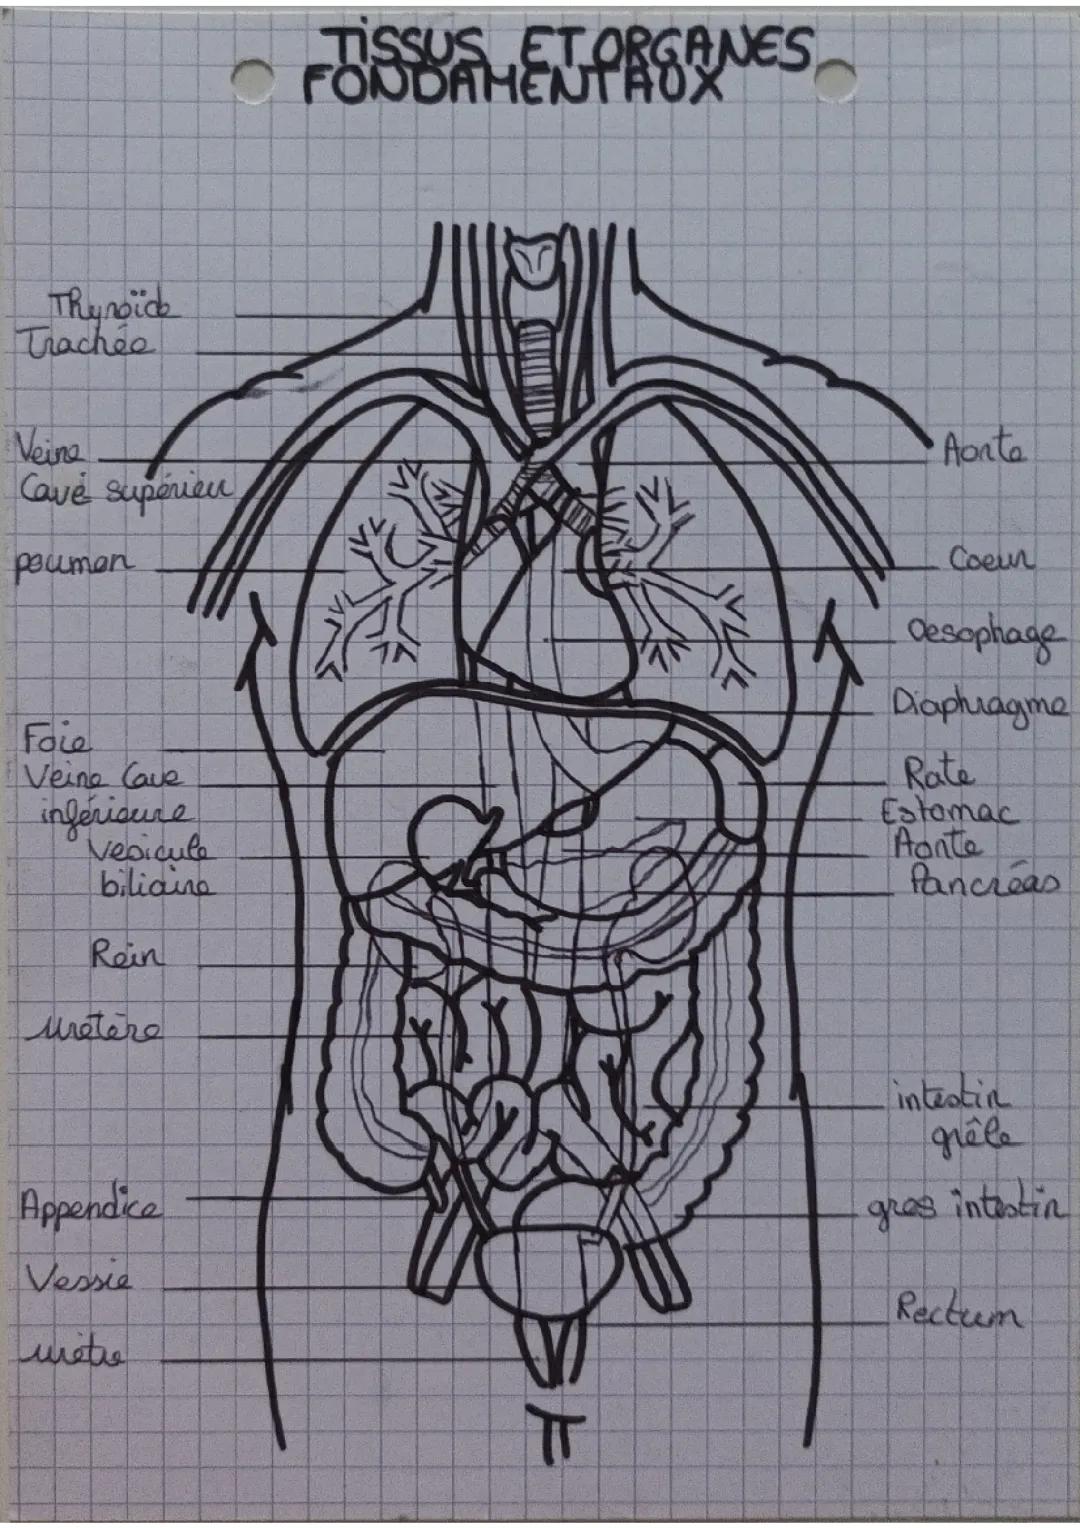 TISSUS ET ORGANES
FONDAMENTAUX
Thyroïde
Trachée
Veine
Cave supérieu
poumon
Foie
Veine Cave
inférieure
Vesicule
biliaire
Rein
uretère
Appendice
Vessie
urètre
Aorte
Coeur
Oesophage
Diaphragme
Rate
Estomac
Aorte
Pancréas
intestin
grêle
gros intestin
Rectum